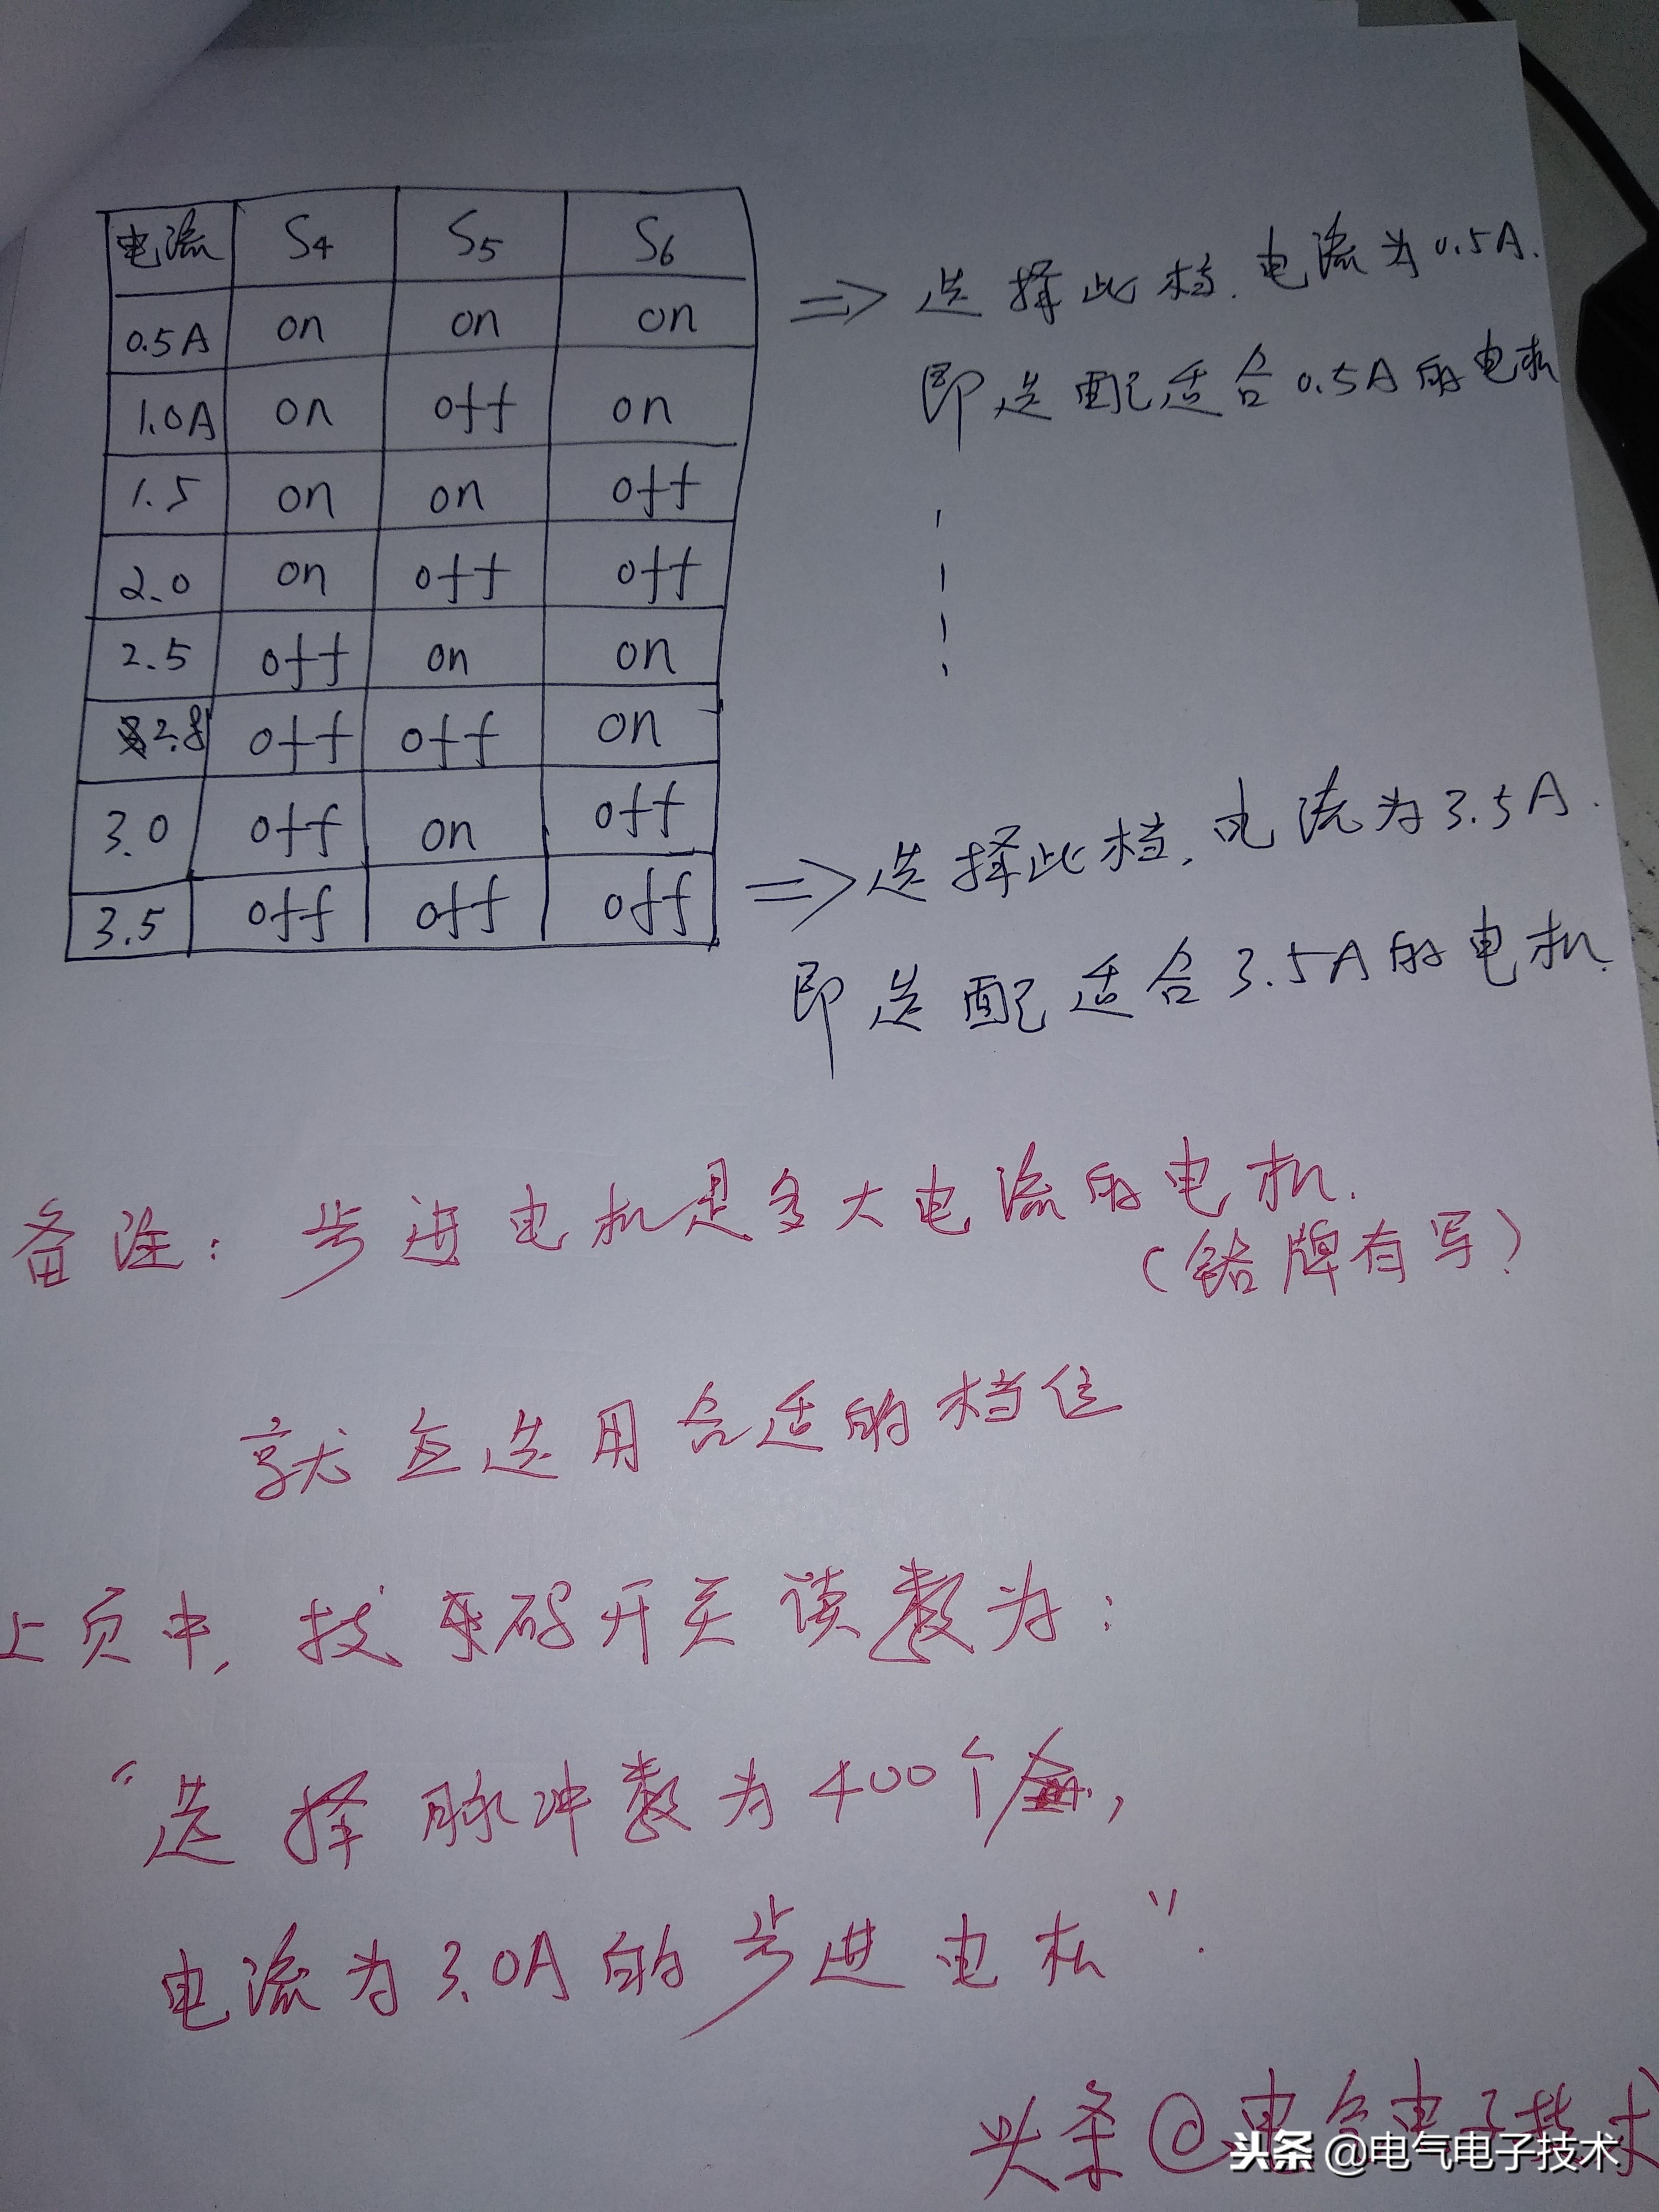 电流 S4 S5 S6
0.5A on on on
1.0A on off on
1.5 on on off
2.0 on off off
2.5 off on on
2.8 off off on
3.0 off on off
3.5 off off off
⇒ 选择此档.电流为0.5A.
即选配适合0.5A的电机
⇒ 选择此档,电流为3.5A.
即选配适合3.5A的电机.
备注: 步进电机是多大电流的电机.
(铭牌有写)
就应选用合适的档位
上页中, 按 码开关读数为:
“选择脉冲数为400个,
电流为3.0A的步进电机”.
头条@电气电子技术
头条 @电气电子技术